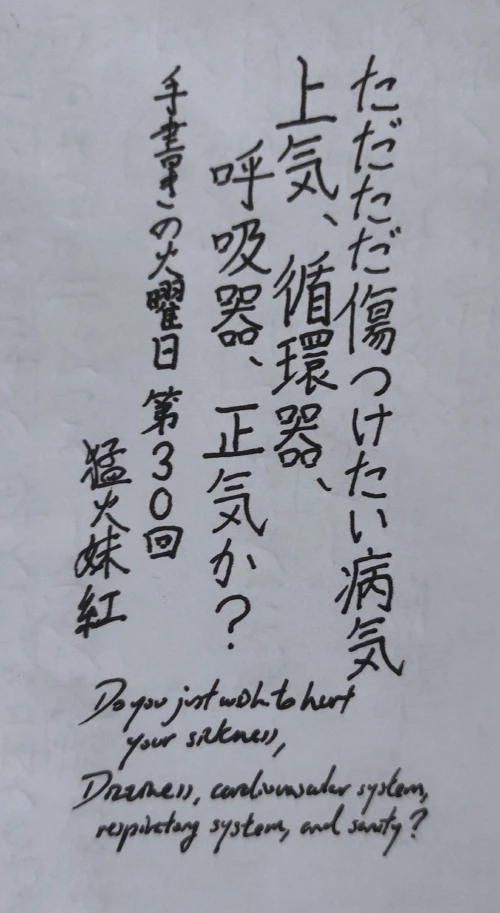 ただただ傷つけたい病気
上気、循環器、
呼吸器、正気か？
手書きの火曜日 第30回
猛火妹紅
Do you just wish to hurt
your sickness,
Dizziness, cardiovascular system,
respiratory system, and sanity?